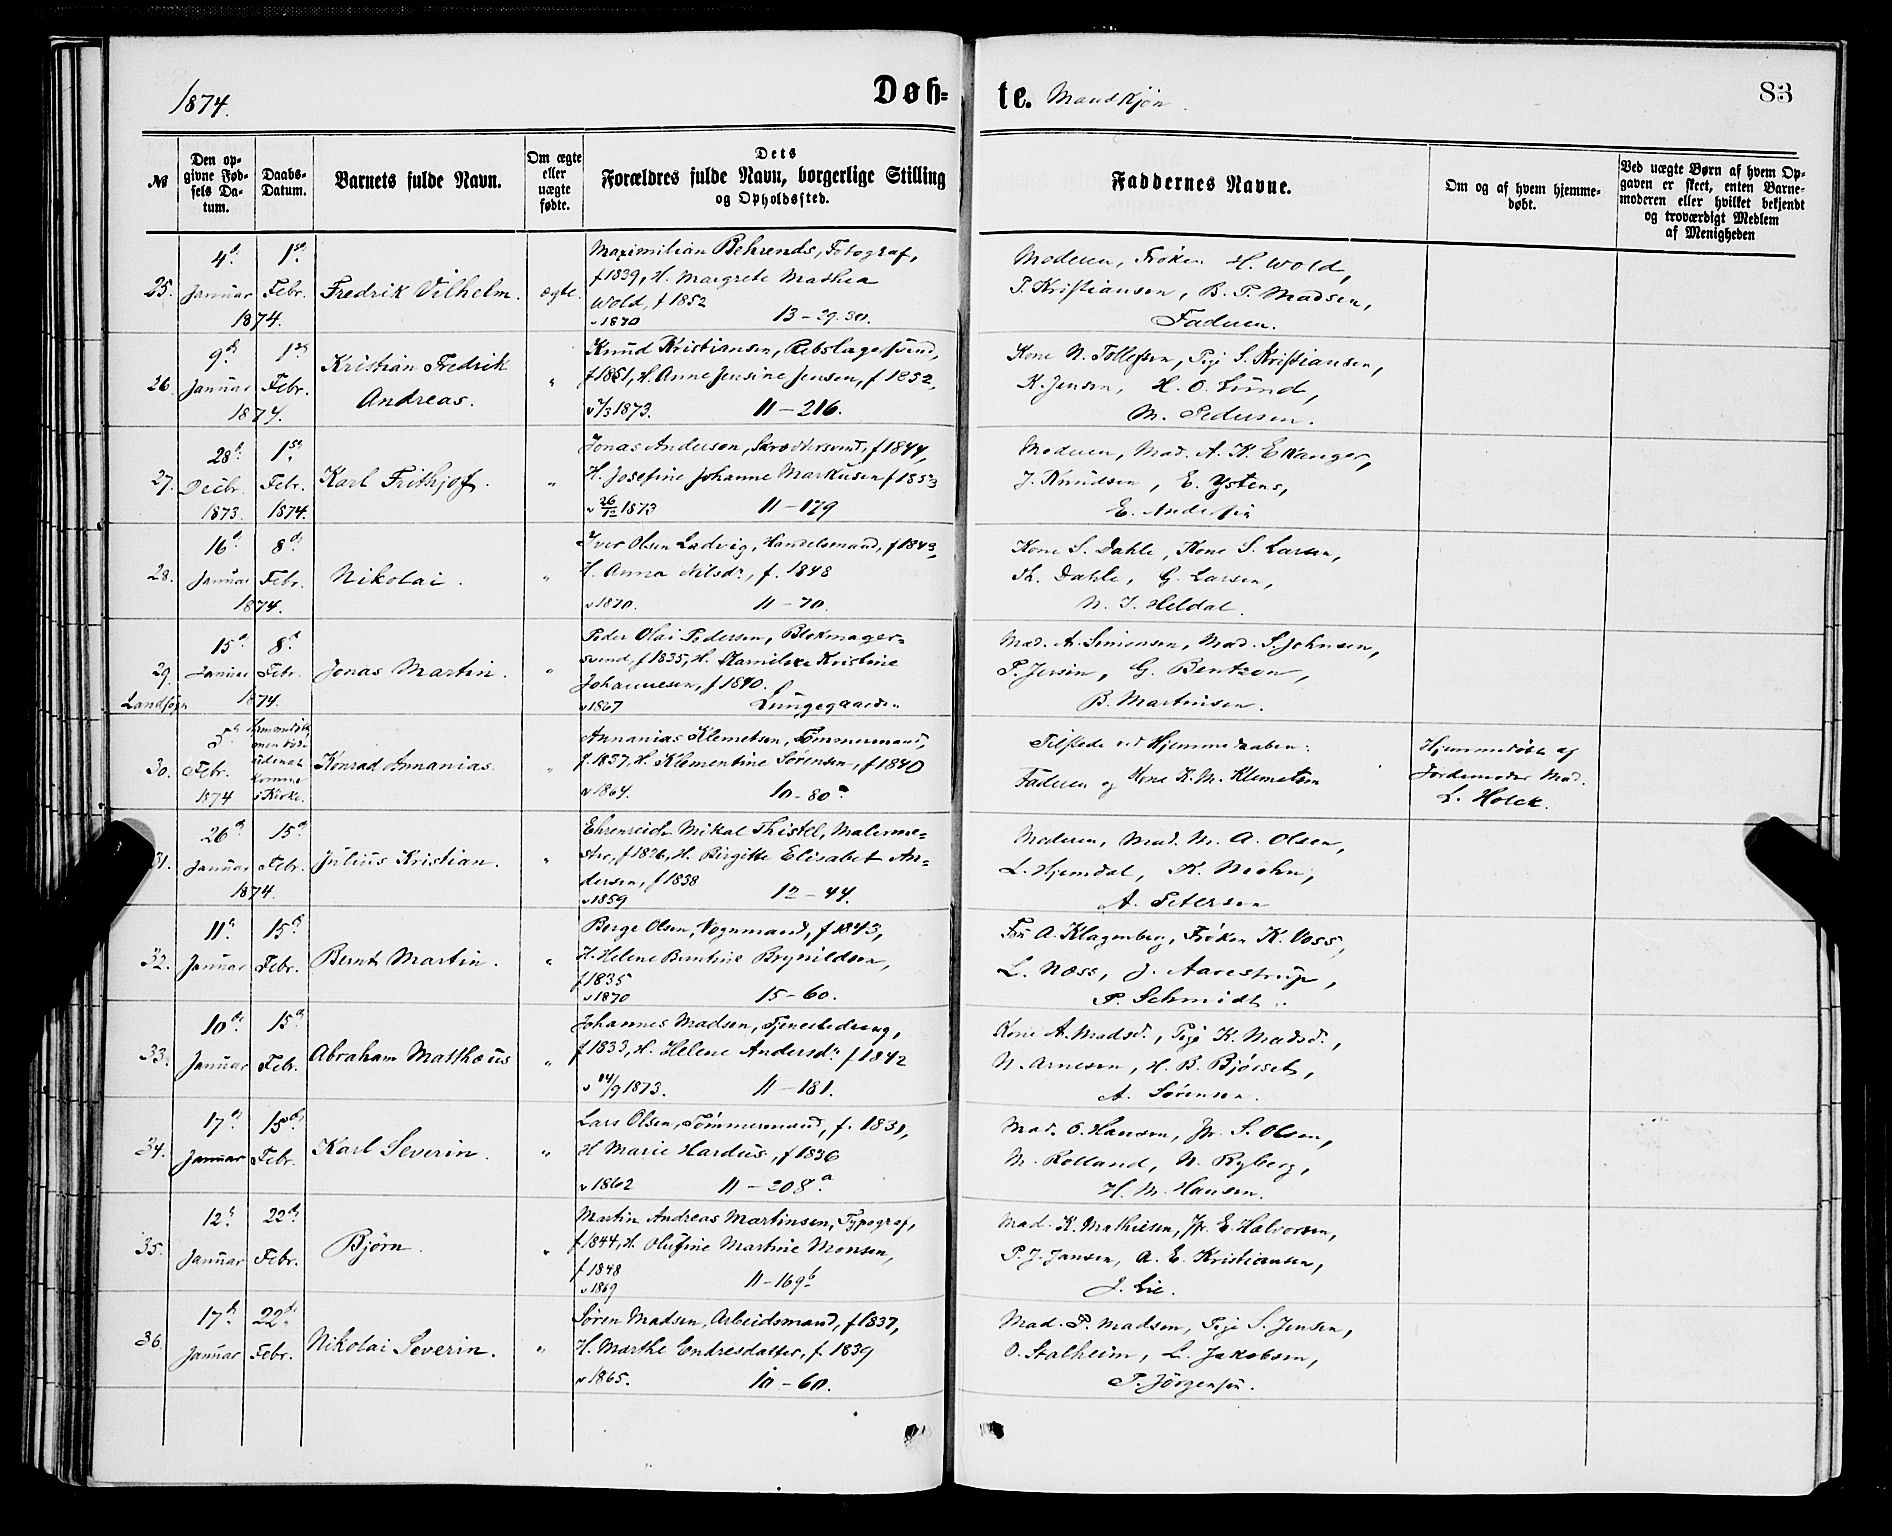 1874.
Døb=
te. Mandkjøn.
83
№
Den op-
givne Fød-
sels Da-
tum.
Daabs-
Datum.
Barnets fulde Navn.
Om ægte
eller
uægte
fødte.
Dets
Forældres fulde Navn, borgerlige Stilling
og Opholdssted.
Faddernes Navne.
Om og af hvem hjemme-
døbt.
Ved uægte Børn af hvem Op-
gaven er skeet, enten Barne-
moderen eller hvilket bekjendt
og troværdigt Medlem
af Menigheden
25.
4d.
Januar
1st
Febr.
1874.
Fredrik Vilhelm.
ægte.
Maximilian Behrends, Fotograf,
f 1839, H. Margrete Mathea
Wold, f 1852
v 1870 13 – 29.30.
Moderen, Frøken H. Wold,
P. Kristiansen, B. P. Madsen,
Faderen.
26.
9d.
Januar
1st
Febr.
1874.
Kristian Fredrik
Andreas.
"
Knud Kristiansen, Rebslagersvend,
f 1851, H. Anne Jensine Jensen, f 1852,
1873. 11 – 216.
Kone N. Tollefsen, Pige S. Kristiansen,
K. Jensen, H. O. Lund,
M. Pedersen.
27.
28d.
Decbr.
1873.
1st
Febr.
1874.
Karl Frithjof.
"
Jonas Andersen, Skrædersvend, f 1844,
H. Josefine Johanne Markusen f 1853
v 26/12 1873 11 – 179
Moderen, Mad. A. K. Ekanger,
J. Knudsen, E. Ystens,
E. Andersen
28.
16d.
Januar
8d.
Febr.
1874.
Nikolai.
"
Iver Olsen Ladvig, Handelsmand, f 1843,
H. Anna Nilsdr., f. 1848
v 1870. 11 – 70.
Kone S. Dahle, Kone S. Larsen,
Th. Dahle, G. Larsen,
N. J. Heldal.
29.
Landsogn
15d.
Januar
8d.
Febr.
1874.
Jonas Martin.
"
Peder Olai Pedersen, Blokmager-
svend, f 1835, H. Kamilska Kristine
Johannesen, f 1840.
v 1867 Lungegaarden
Mad. A. Simonsen, Mad. S. Johnsen,
P. Jensen, G. Bentzen,
B. Martinsen.
30.
5d.
Febr.
1874
men død
uden at
komme
i Kirke.
Konrad Annanias.
Annanias Klemetsen, Tømmermand,
f 1837, H. Klementine Sørensen, f 1840
v 1864. 10 – 80a.
Tilstede ved Hjemmedaaben:
Faderen og Kone K. M. Klemetsen
Hjemmedøbt af
Jordemoder Mad.
L. Holck.
31.
26d.
Januar
15d.
Febr.
1874.
Julius Kristian.
"
Ehrenreich Mikal Thistel, Malerme-
ster, f 1826, H. Birgitte Elisabet An-
dersen, f 1838
v 1859 12 – 44.
Moderen, Mad. M. A. Olsen,
L. Hjemdal, K. Mohn,
A. Petersen
32.
11d.
Januar
15d.
Febr.
Bernt Martin.
"
Berge Olsen, Vognmand, f 1843,
H. Helene Bentine Brynildsen,
f 1835
v 1870 15 – 60.
Fru A. Klagenberg, Frøken K. Voss,
L. Næss, J. Aarestrup,
P. Schmidt.
33.
10d.
Januar
15d.
Febr.
Abraham Matthæus
"
Johannes Madsen, Tjenestedreng,
f 1833, H. Helene Andersdr. f 1842
v 14/9 1873. 11 – 181.
Kone A. Madsd., Pige K. Madsd.,
N. Arnesen, H. B. Bjørset,
A. Sørensen.
34.
17d.
Januar
15d.
Febr.
Karl Severin.
"
Lars Olsen, Tømmermand, f. 1831,
H Marie Hardus, f 1836
v 1862 11 – 208a
Mad. O. Hansen, Jfr. S. Olsen,
M. Rolland, N. Ryberg,
H. M. Hansen.
35.
12d.
Januar
22d.
Febr.
Bjørn.
"
Martin Andreas Martinsen, Typograf,
f 1844, H. Olufine Martine Monsen,
f 1848
v 1869 11 – 169b
Mad. K. Mathiesen, Jfr. E. Halvorsen,
P. J. Jansen, A. E. Kristiansen,
J. Lie.
36.
17d.
Januar
22d.
Febr.
Nikolai Severin.
"
Søren Madsen, Arbeidsmand, f 1837,
H. Marthe Endresdatter, f. 1839
v 1865. 10 – 60.
Mad. P. Madsen, Pige S. Jensen,
O. Stalheim, L. Jakobsen,
P. Jørgensen.